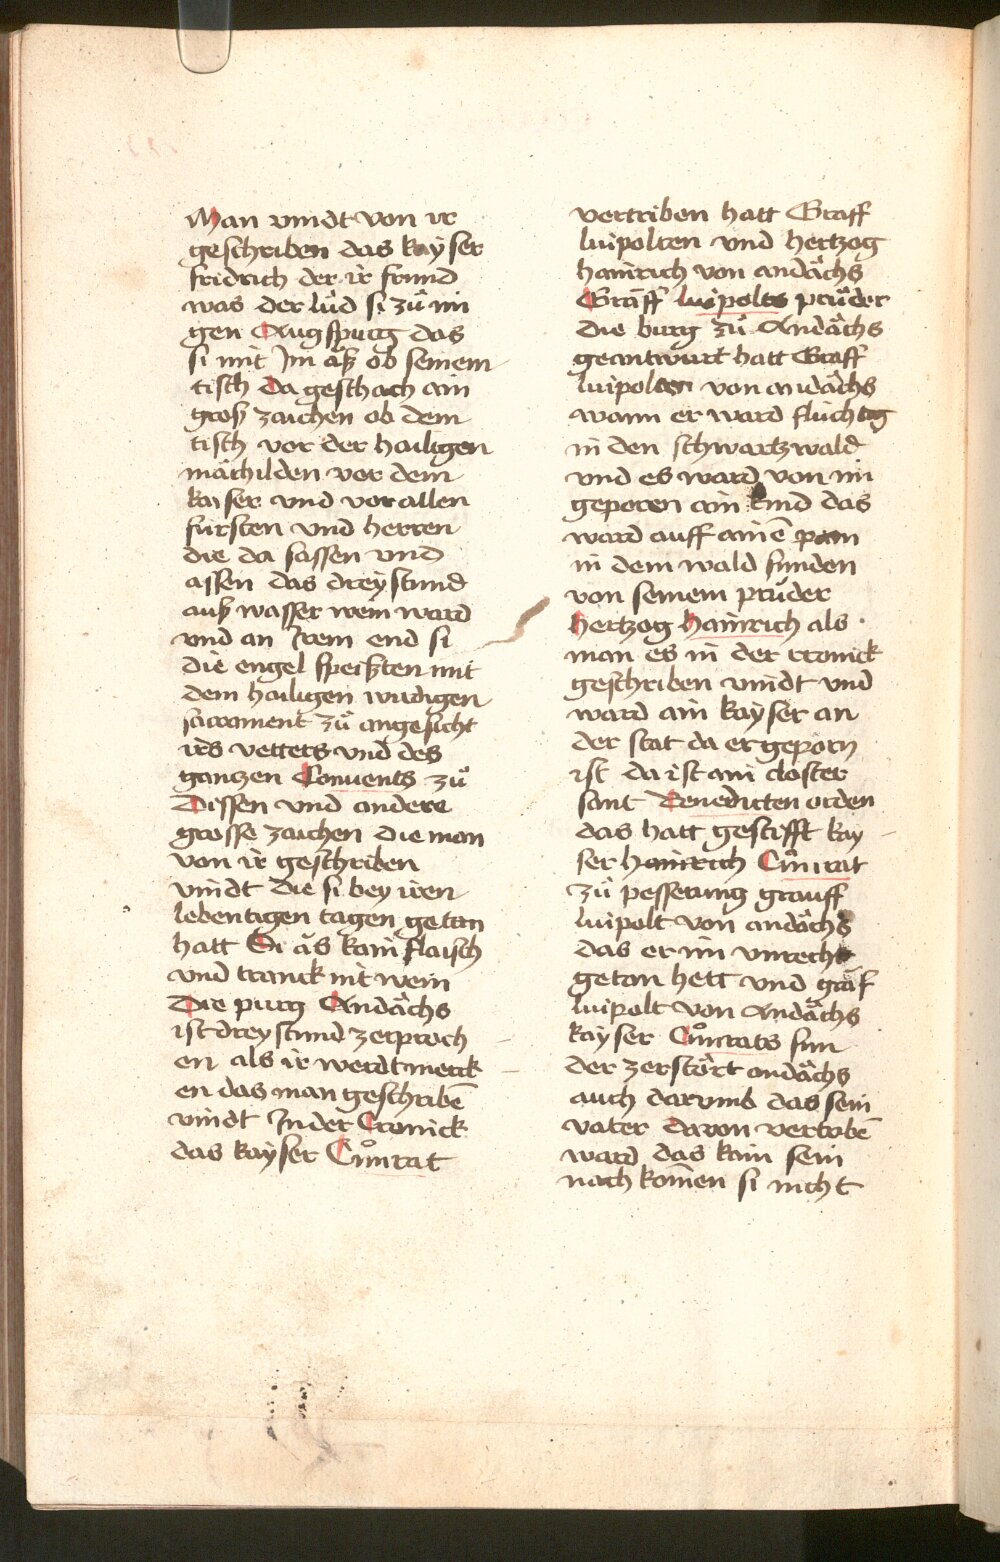 Man vindt von ir
geschriben das kayser
fridrich der ir frund
was der lůd si zů im
gen Augspurg das
si mit Im aß ob seinem
tisch Da geschach ain
groß zaichen ob dem
tisch vor der hailigen
mächilden vor dem
kaiser vnd vor allen
fürsten vnd herren
die da sassen vnd
assen das drey stund
auß wasser wein ward
vnd an Irem end si
die engel speißten mit
dem hailigen wirdigen
sacrament zů angesicht
irs vetters vnd des
ganzen Conuents zů
Dissen vnd andere
grosse zaichen die man
von ir geschriben
vindt die si bey iren
lebentigen tagen getan
hatt Si äs kain flaisch
vnd tranck nit wein
Die purg Andächs
ist drey stund zerproch
en als ir werdt merck
en das man geschribē
vindt In der Cronick
das kayser Cůnrat
vertriben hatt Graff
luipolten vnd hertzog
hainrich von andächs
Graff luipolts prüder
die burg zů Andächs
geantwurt hatt Graff
luipolten von andächs
wann er ward flüchtig
in den schwartzwald
vnd es ward von im
geporen ain kind das
ward auff ainē pam
in dem wald funden
von seinem prüder
hertzog hainrich als
man es in der cronick
geschriben vindt vnd
ward ain kayser an
der stat da er geporn
ist da ist ain closter
sant Benedicten orden
das hatt gestifft kay
ser hainrich Cůnrat
zů pesserung grauff
luipolt von andächs
das er im vnrecht
getan hett vnd graf
luipolt von Andächs
kayser Cůnrats sun
der zerstört andächs
auch darumb das sein
vater dauon vertribē
ward das kain sein
nachkomen si nicht